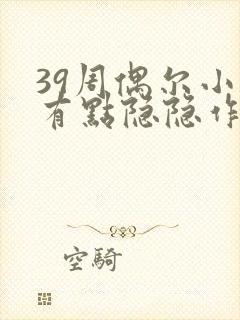 39周偶尔小
有點隐隐作
空騎